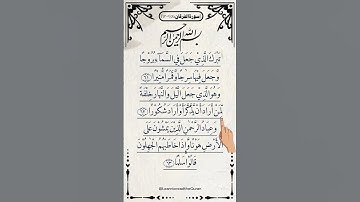 سورة الفرقان
بسم الله الرحمن الرحيم
تَبَٰرَكَ ٱلَّذِي جَعَلَ فِي ٱلسَّمَآءِ بُرُوجٗا
وَجَعَلَ فِيهَا سِرَٰجٗا وَقَمَرٗا مُّنِيرٗا ٦١
وَهُوَ ٱلَّذِي جَعَلَ ٱلَّيۡلَ وَٱلنَّهَارَ خِلۡفَةٗ
لِّمَنۡ أَرَادَ أَن يَذَّكَّرَ أَوۡ أَرَادَ شُكُورٗا ٦٢
وَعِبَادُ ٱلرَّحۡمَٰنِ ٱلَّذِينَ يَمۡشُونَ عَلَى
ٱلۡأَرۡضِ هَوۡنٗا وَإِذَا خَاطَبَهُمُ ٱلۡجَٰهِلُونَ
قَالُواْ سَلَٰمٗا ٦٣
@LearntoreadtheQuran